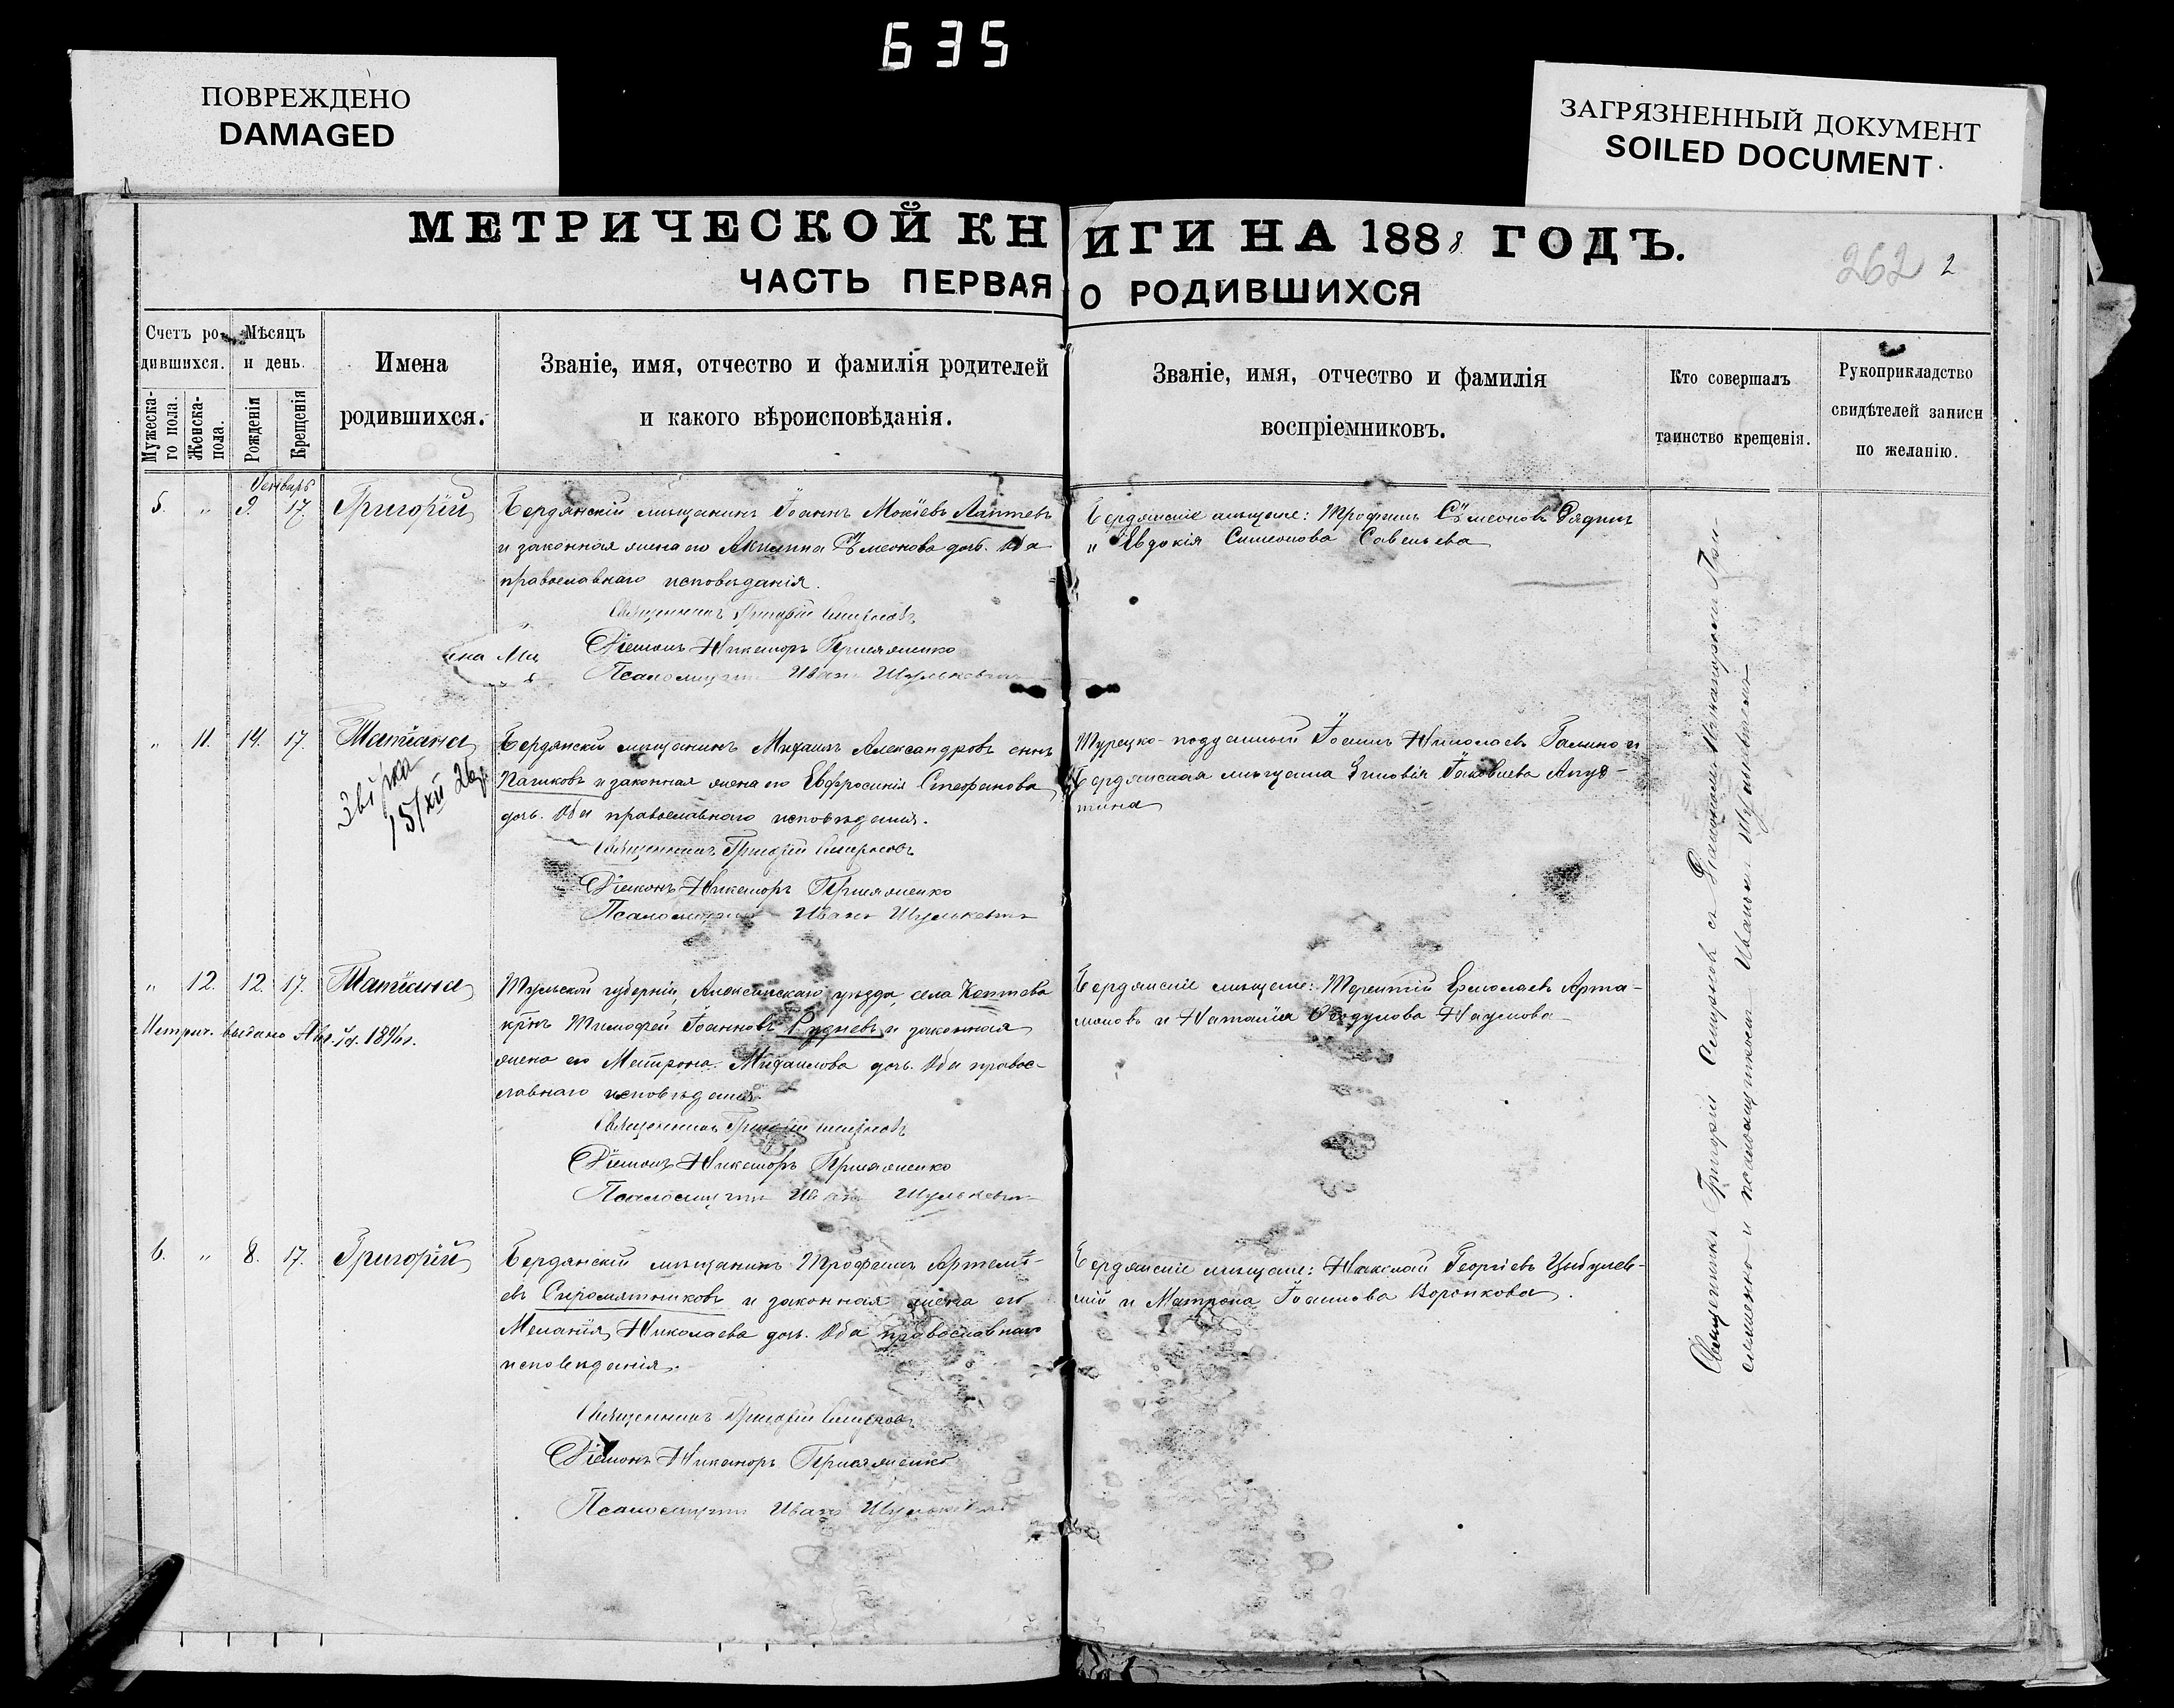 635
ПОВРЕЖДЕНО
DAMAGED
ЗАГРЯЗНЕННЫЙ ДОКУМЕНТ
SOILED DOCUMENT
МЕТРИЧЕСКОЙ КНИГИ НА 1888 ГОДЪ.
262 2
ЧАСТЬ ПЕРВАЯ О РОДИВШИХСЯ
Счетъ ро-
дившихся.
Мужеска-
го пола.
Женска-
пола.
Мѣсяцъ
и день.
Рожденія
Крещенія
Имена
родившихся.
Званіе, имя, отчество и фамилія родителей
и какого вѣроисповѣданія.
Званіе, имя, отчество и фамилія
воспріемниковъ.
Кто совершалъ
таинство крещенія.
Рукоприкладство
свидѣтелей записи
по желанію.
Генварь
5. " 9. 17. Григорій
Бердянскій мѣщанинъ Іоаннъ Мокіевъ Лаптевъ
и законная жена его Акилина Сѵмеонова дочь. Оба
православнаго исповѣданія.
Священникъ Григорій
Діаконъ Никаноръ
Псаломщикъ Иванъ Шулькевичъ
Бердянскіе мѣщане: Трофимъ Сѵмеоновъ
" Евдокія Симеонова Савельева
" 11. 14. 17. Татіана
15/XII 26
Бердянскій мѣщанинъ Михаилъ Александровъ сынъ
и законная жена его Евфросинія Стефанова
дочь. Оба православнаго исповѣданія.
Священникъ Григорій
Діаконъ Никаноръ
Псаломщикъ Иванъ Шулькевичъ
Турецко-подданный Іоаннъ Николаевъ Галино и
Бердянская мѣщанка Зиновія Іаковлева
" 12. 12. 17. Татіана
Метрич. выдано 1896 г.
Тульской губерніи, Алексинскаго уѣзда, села
крнъ Тимофей Іоанновъ Рудневъ и законная
жена его Матрона Михаилова дочь. Оба правос-
лавнаго исповѣданія.
Священникъ Григорій
Діаконъ Никаноръ
Псаломщикъ Иванъ Шулькевичъ
Бердянскіе мѣщане: Терентій Ермолаевъ Арта-
моновъ и Наталія Наумова
6. " 8. 17. Григорій
Бердянскій мѣщанинъ Трофимъ Артемі-
евъ Сиромятниковъ и законная жена его
Меланія Николаева дочь. Оба православнаго
исповѣданія.
Священникъ Григорій
Діаконъ Никаноръ
Псаломщикъ Иванъ Шулькевичъ
Бердянскіе мѣщане: Николай Георгіевъ Цыбулев-
скій и Матрона Іоаннова Воронкова.
Священникъ Григорій съ Діакономъ Никаноромъ
и псаломщикомъ Иваномъ Шулькевичемъ